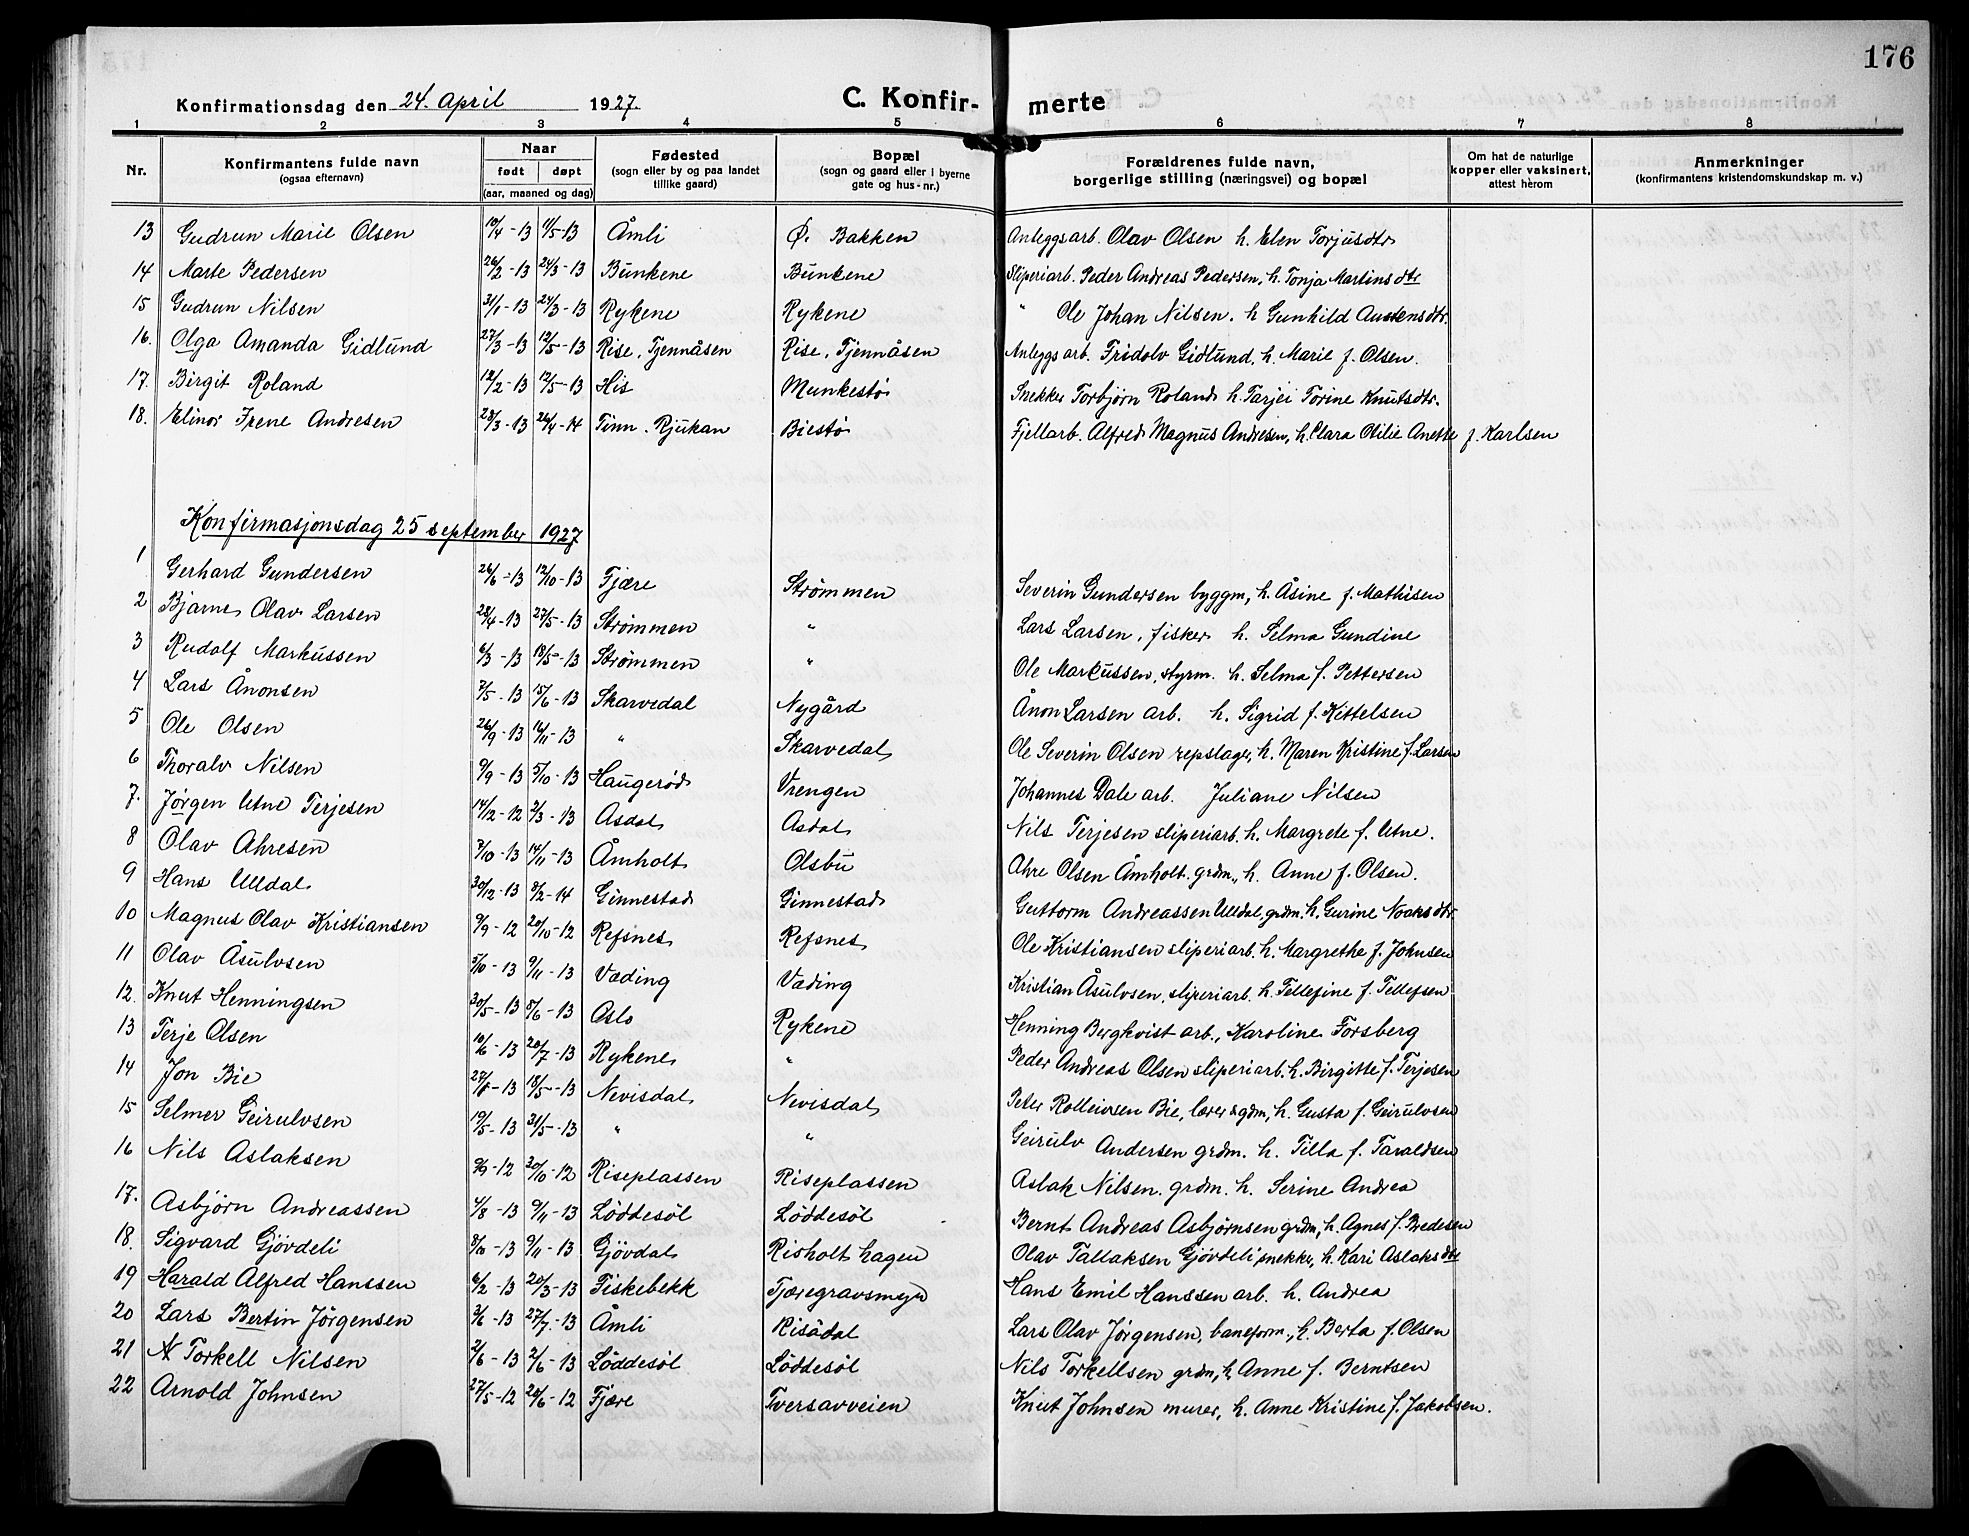 176
Konfirmationsdag den 24. April 1927. C. Konfir- merte
1 2 3 4 5 6 7 8
Nr. Konfirmantens fulde navn (ogsaa efternavn) Naar født døpt (aar, maaned og dag) Fødested (sogn eller by og paa landet tillike gaard) Bopæl (sogn og gaard eller i byerne gate og hus-nr.) Forældrenes fulde navn, borgerlige stilling (næringsvei) og bopæl Om hat de naturlige kopper eller vaksinert, attest herom Anmerkninger (konfirmantens kristendomskundskap m. v.)
13 Gudrun Marie Olsen 10/4-13 11/5-13 Åmli Ø. Bakken Anleggsarb. Olav Olsen h. Elen Torjusdtr
14 Marte Pedersen 26/2-13 24/3-13 Bunkene Bunkene Sliperiarb. Peder Andreas Pedersen, h. Tonja Martinsdtr
15 Gudrun Nilsen 31/1-13 24/3-13 Rykene Rykene " Ole Johan Nilsen. h Gunhild Austensdtr.
16. Olga Amanda Gidlund 27/3-13 12/5-13 Rise, Tjennåsen Rise, Tjennåsen Anleggsarb. Fridolv Gidlund. h. Marie f. Olsen.
17. Birgit Roland 12/2-13 12/5-13 His Munkestø Snekker Torbjørn Roland h. Tarjei Torine Knutsdtr.
18. Elinor Irene Andresen 23/3-13 26/4-14 Tinn. Rjukan Biestø Fjellarb. Alfred Magnus Andresen, h. Clara Otilie Anette f. Karlsen
Konfirmasjonsdag 25 september 1927
1 Gerhard Gundersen 26/6-13 12/10-13 Fjære Strømmen Severin Gundersen byggm, h. Åsine f. Mathisen
2 Bjarne Olav Larsen 28/4-13 27/5-13 Strømmen " Lars Larsen, fisker h. Selma Gundine
3 Rudolf Markussen 6/3-13 18/5-13 Strømmen " Ole Markussen, styrm. h. Selma f. Pettersen
4 Lars Ånonsen 7/5-13 15/6-13 Skarvedal Nygård Ånon Larsen arb. h. Sigrid f. Kittelsen
5 Ole Olsen 26/9-13 14/11-13 " Skarvedal Ole Severin Olsen repslager, h. Maren Kristine f. Larsen
6 Thoralv Nilsen 9/9-13 5/10-13 Haugerød Vrengen Johannes Dale arb. Juliane Nilsen
7. Jørgen Utne Terjesen 14/12-12 2/3-13 Asdal Asdal Nils Terjesen sliperiarb. h. Margrete f. Utne.
8 Olav Ahresen 7/10-13 14/11-13 Åmholt Olsbu Ahre Olsen Åmholt. grdm., h. Anne f. Olsen.
9 Hans Ulldal 30/12-13 8/2-14 Ginnestad Ginnestad Guttorm Andreassen Ulldal, grdm. h. Gurine Noaksdtr
10 Magnus Olav Kristiansen 9/9-12 20/10-12 Refsnes Refsnes Ole Kristiansen sliperiarb. h. Margrethe f. Johnsen
11 Olav Åsulvsen 5/10-13 9/11-13 Væding Væding Kristian Åsulvsen, sliperiarb. h. Tellefine f. Tellefsen
12. Knut Henningsen 30/5-13 8/6-13 Oslo Rykene Henning Bergkvist arb., Karoline Forsberg
13 Terje Olsen 10/6-13 20/7-13 Rykene " Peder Andreas Olsen sliperiarb. h. Birgitte f. Terjesen
14 Jon Bie -13 18/5-13 Nevisdal Nevisdal Peter Rolleivsen Bie, lærer & gdm, h. Gusta f. Geirulvsen
15 Selmer Geirulvsen 19/5-13 31/5-13 " " Geirulv Andersen grdm. h. Tilla f. Taraldsen
16 Nils Aslaksen -12 20/10-12 Riseplassen Riseplassen Aslak Nilsen. grdm. h. Serine Andrea
17. Asbjørn Andreassen 4/8-13 9/11-13 Løddesøl Løddesøl Bernt Andreas Asbjørnsen grdm, h. Agnes f. Bredesen
18. Sigvard Gjøvdeli 8/10-13 9/11-13 Gjøvdal Risholt hagen Olav Tallaksen Gjøvdeli snekker, h. Kari Aslaksdtr
19 Harald Alfred Hanssen 6/2-13 20/3-13 Fiskebekk Fjæregravsmyr Hans Emil Hanssen arb. h. Andrea
20 Lars Bertin Jørgensen 3/6-13 27/7-13 Åmli Risådal Lars Olav Jørgensen, baneform., h. Berta f. Olsen
21 Torkell Nilsen 2/6-13 2/6-13 Løddesøl Løddesøl Nils Torkellsen grdm, h. Anne f. Berntsen
22 Arnold Johnsen 27/5-12 24/6-12 Fjære Tversavveien Knut Johnsen murer, h. Anne Kristine f. Jakobsen.